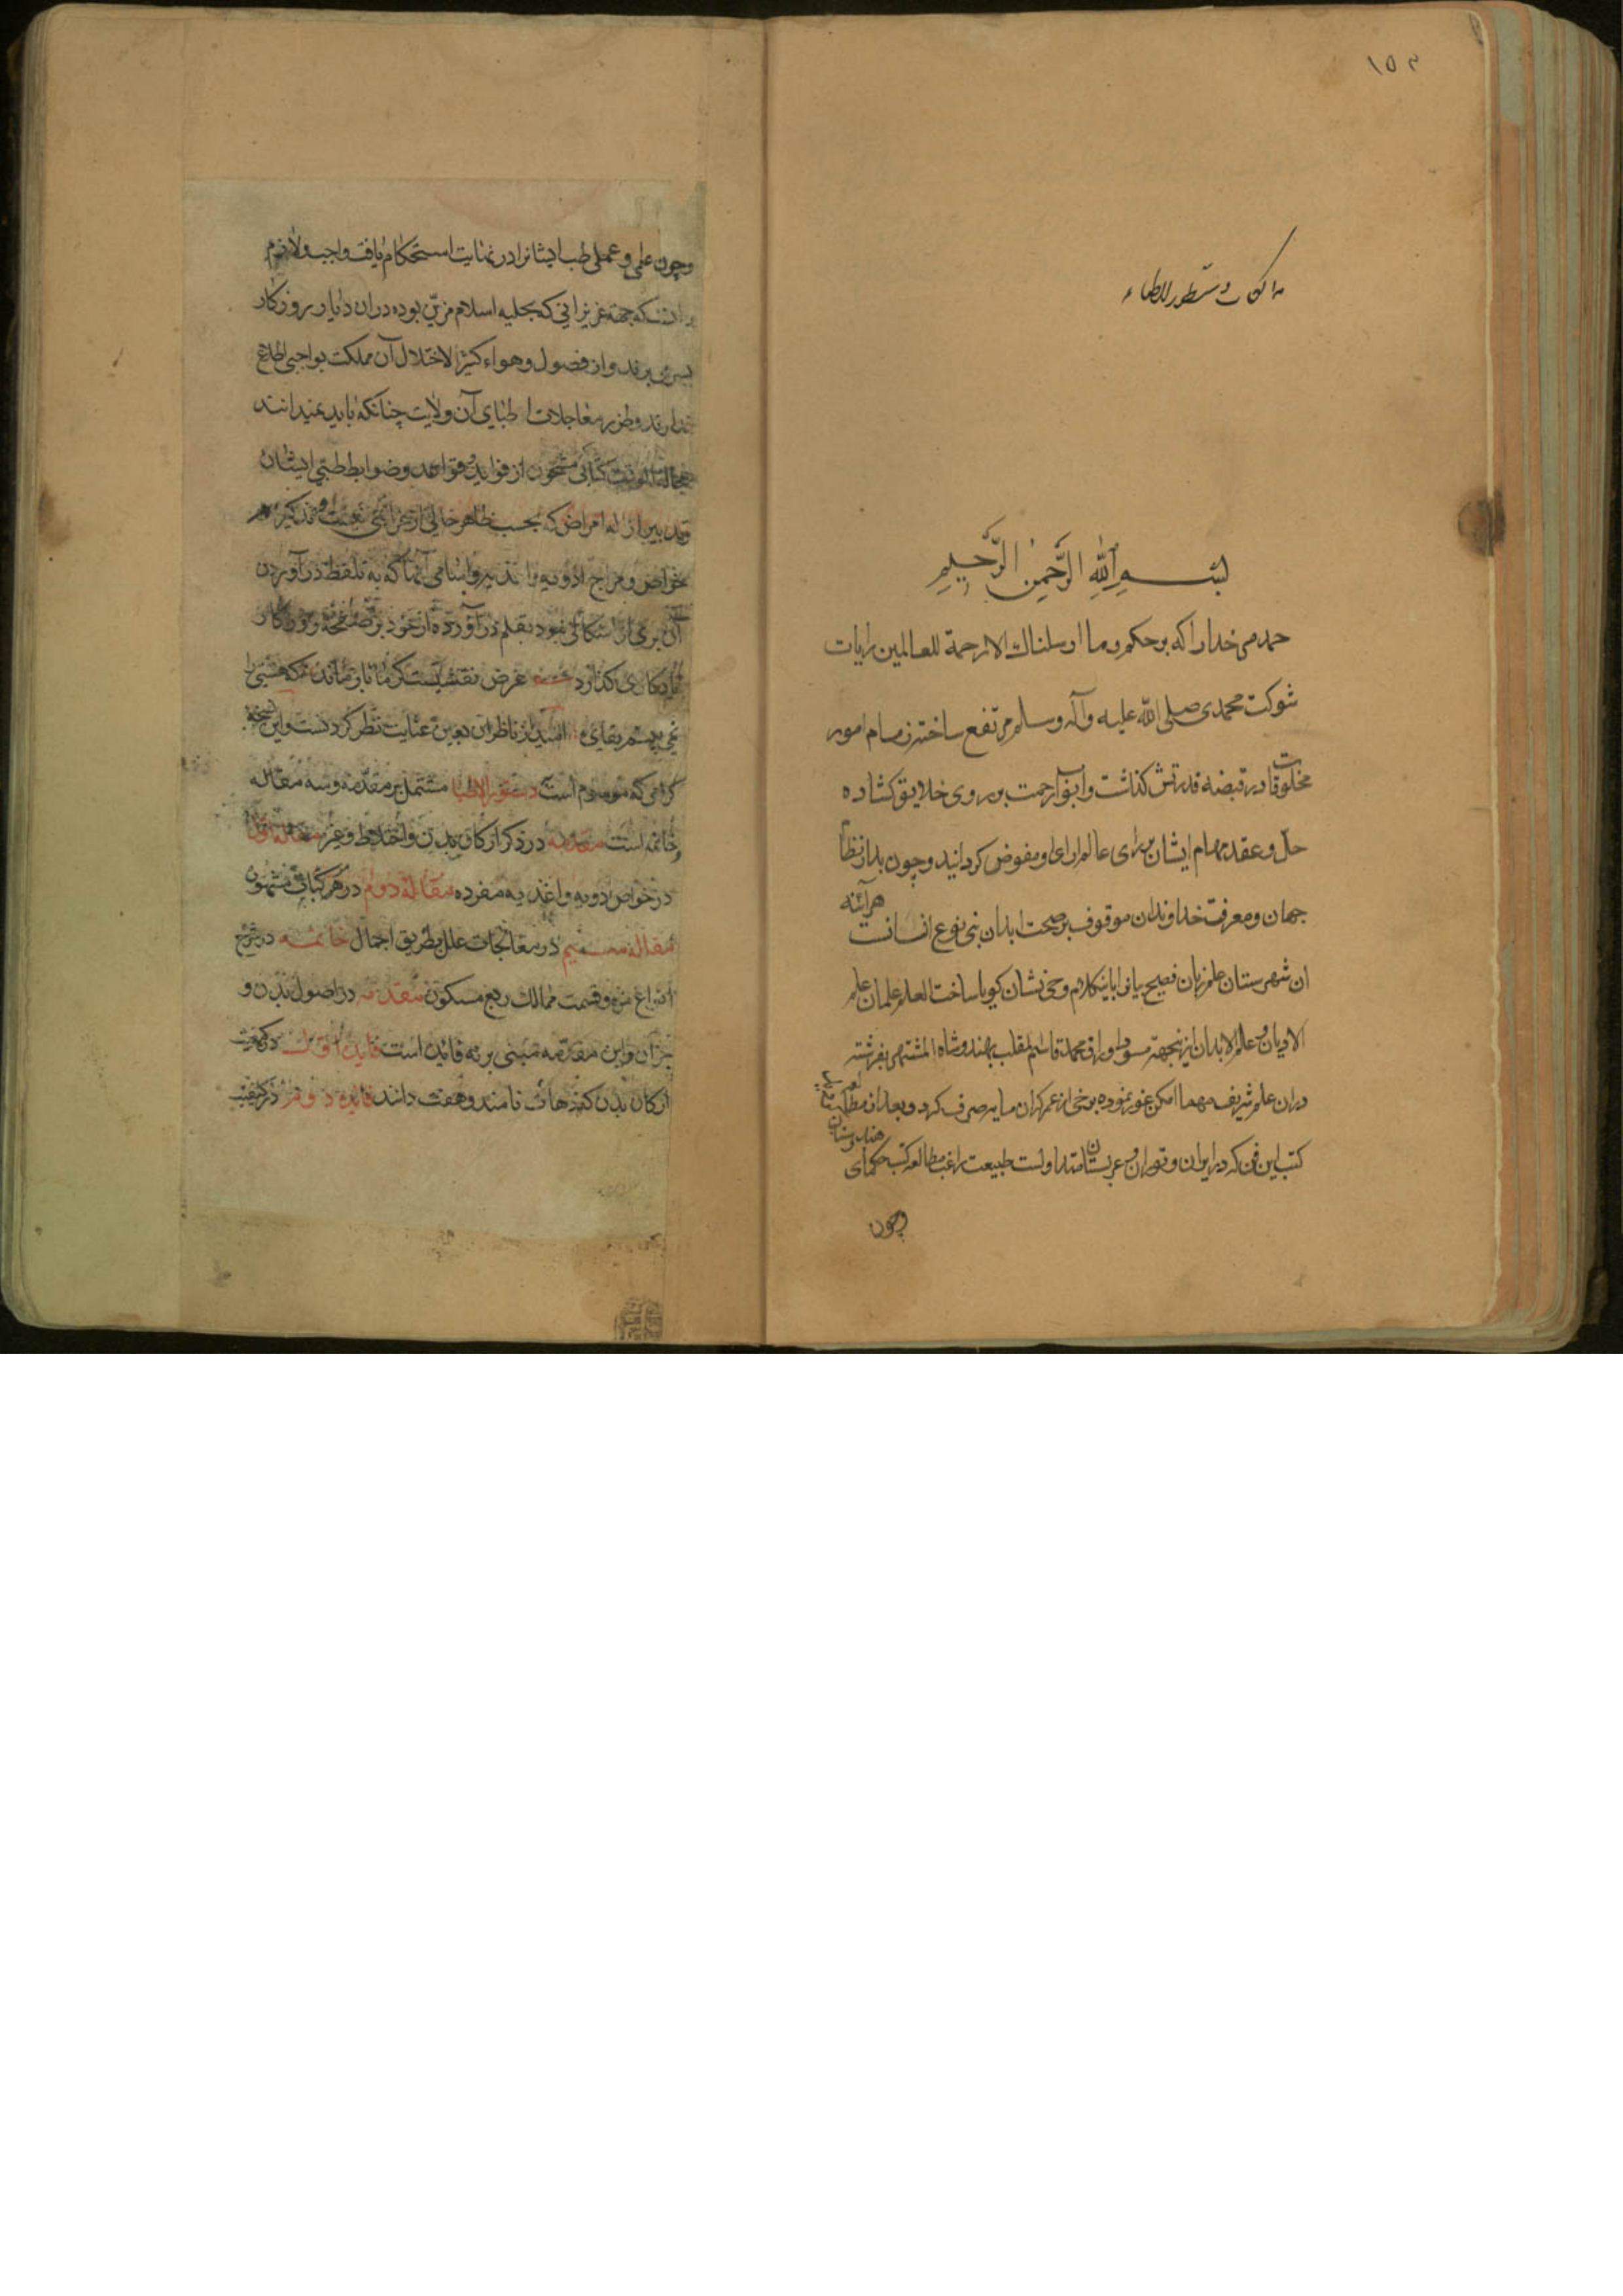 ١٥٣
هذا کتاب دستور الاطباء
بسم الله الرحمن الرحیم
حمد مر خدا را که بر حکم وما ارسلناك الا رحمة للعالمین رایات
شوکت محمدی صلی الله علیه وآله وسلم مرتفع ساخته زمام امور
مخلوقات در قبضه قدرتش کذاشت وابواب رحمت بر روی خلایق کشاده
حل و عقد مهام ایشان برای عالم ارای او مفوض کردانید وچون مدار نظام
جهان ومعرفت خداوندان موقوف بر صحت ابدان بنی نوع انسانست هرآئنه
ان شهرستان علم زبان فصیح بیان را باین کلام وحی نشان کویا ساخت العلم علمان علم
الادیان وعلم الابدان ازینجهته مسود اوراق محمد قاسم المقلب بهندوشاه المشتهر بفرشته
دران علم شریف مهما امکن غور نموده برخی از عمر کران مایه صرف کرد و بعد از مطالعه
کتب این فن که در ایران و توران و عربستان متداولست طبیعت راغب مطالعه کتب حکمای هندوستان
وچون
وچون علمی و عملی طب ایشانرا در نهایت استحکام یافت واجب ولازم
که جهة عزیزانی که بحلیه اسلام مزین بوده دران دیار روزکار
بسر می برند واز فصول و هواء کثیر الاختلال آن مملکت بواجبی اطلاع
ندارند وطرز معاجلات اطبای آن ولایت چنانکه باید نمیدانند
کتابی مشحون از فواید و قواعد وضوابط طبی ایشان
وتدبیر ازاله امراض که بحسب ظاهر خالی از غرابتی نیست و
خواص ومزاج ادویه واغذیه واسامی آنها که به تلفظ درآوردن
آن برمی از اشکالی نبود بقلم درآورده از خود بر صفحه روزکار
یادکاری کذارد غرض نقشیست کز ما باز ماند که هستی را
نمی بینم بقایی امید از ناظران بعین عنایت نظر کردنست واین نسخه
کرامی که موسوم است دستور الاطبا مشتمل بر مقدمه وسه مقاله
وخاتمه است مقدمه در ذکر ارکان بدن واخلاط وغیره مقاله اول
در خواص ادویه واغذیه مفرده مقاله دوم در مرکباتی
مقاله سیم در معالجات علل بطریق اجمال خاتمه در شرح
انواع مزه وقسمت ممالك ربع مسکون مقدمه در اصول بدن و
جز آن واین مقدمه مبنی بر نه فایده است فایده اول در کمیت
ارکان بدن که دهات نامند وهفت دانند فایده دوم در کیفیت